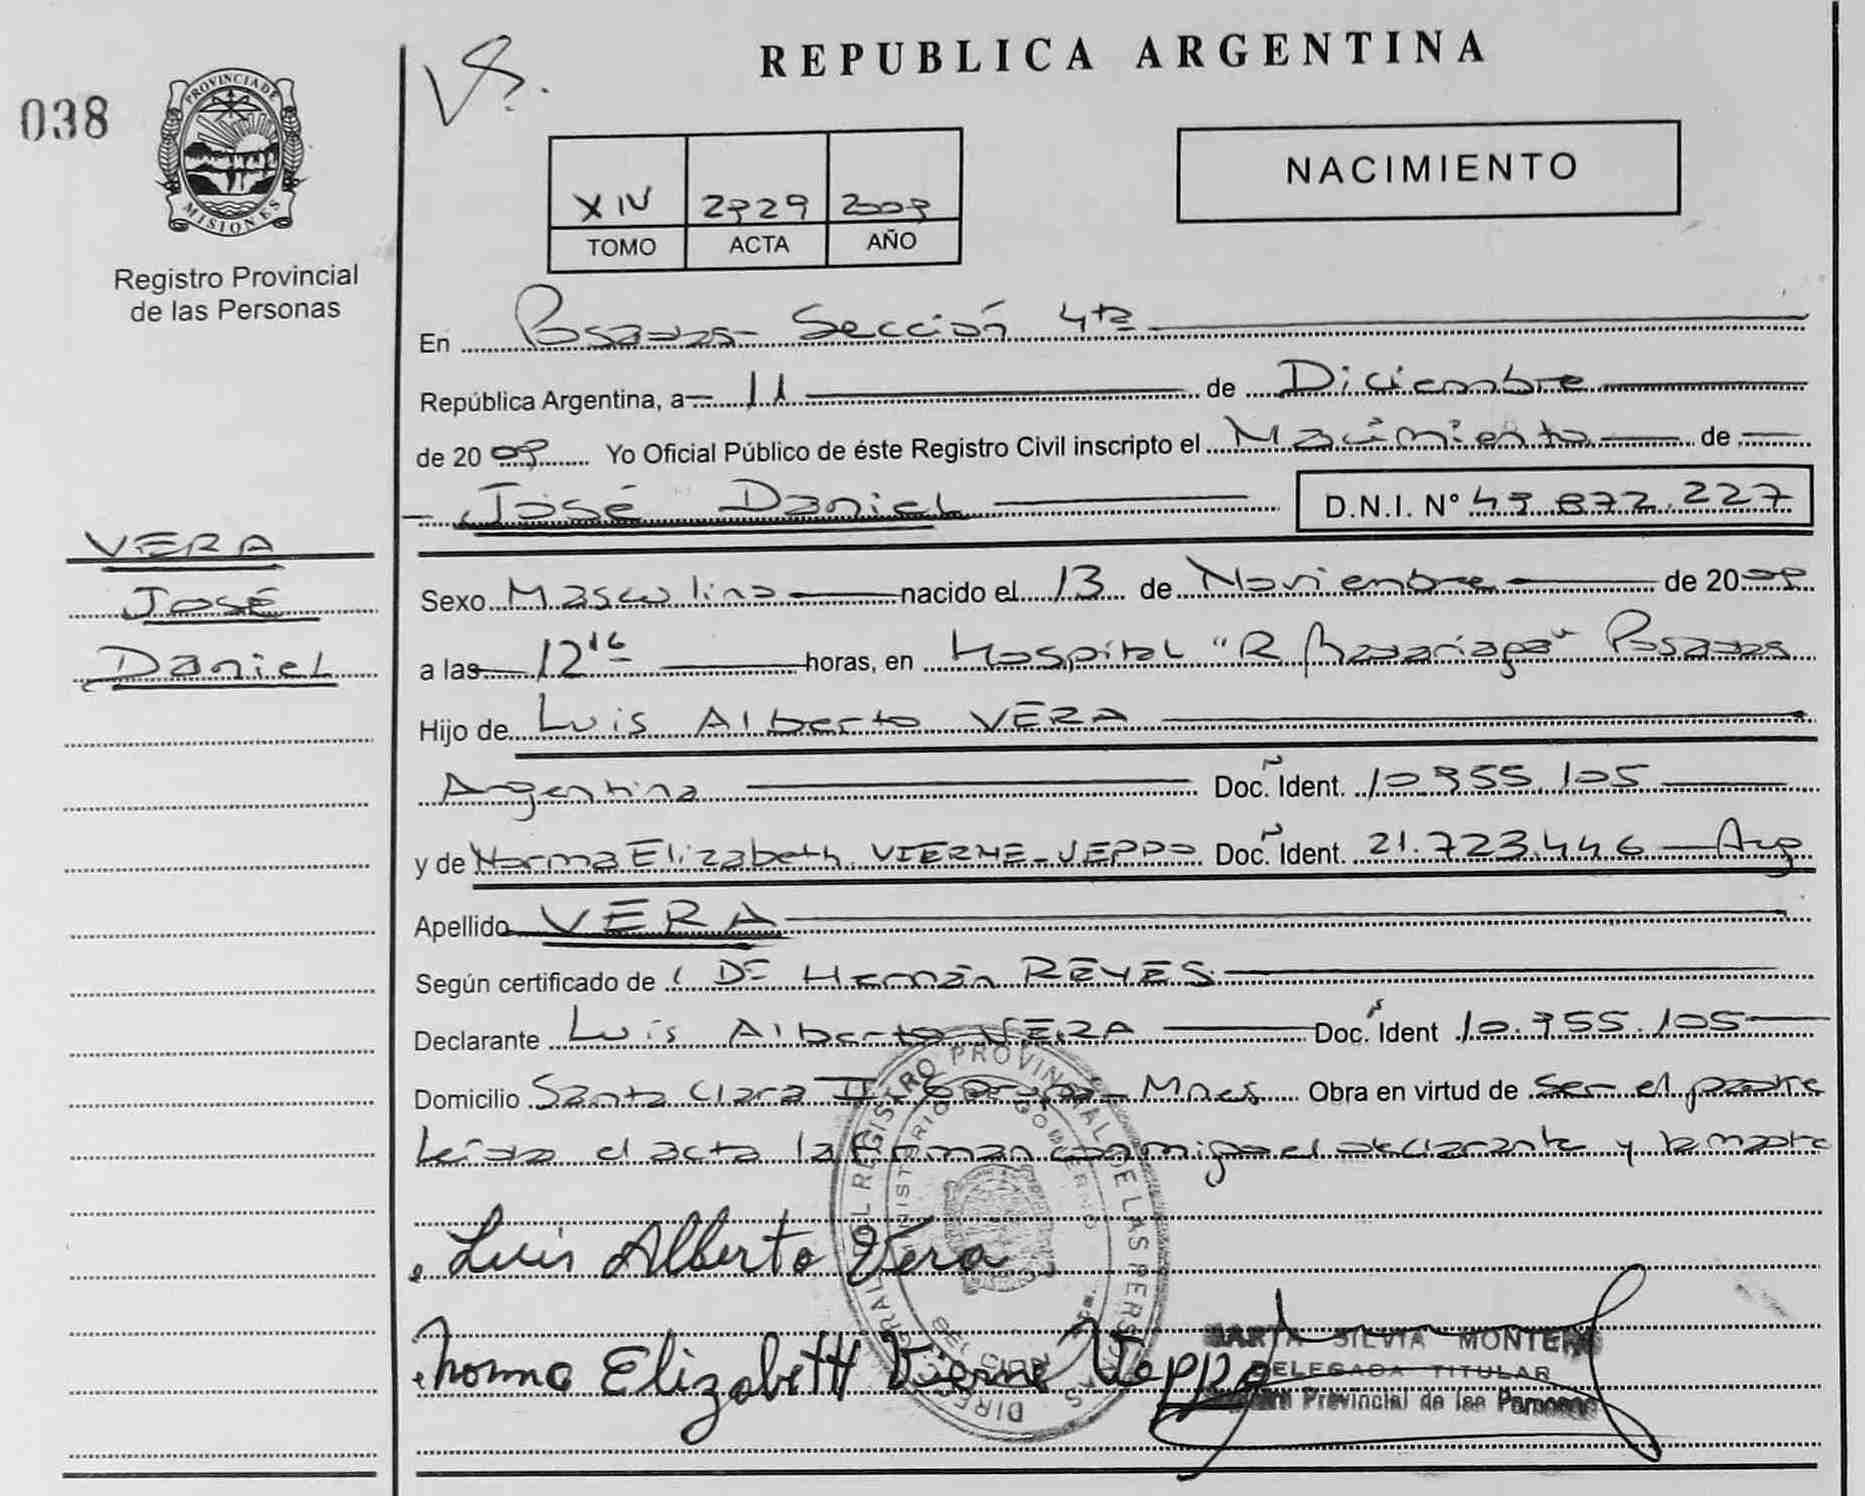 REPUBLICA ARGENTINA
038
PROVINCIA DE
MISIONES
Registro Provincial
de las Personas
XIV 2929 2009
TOMO ACTA AÑO
NACIMIENTO
En Posadas - Sección 4ta
República Argentina, a 11 de Diciembre
de 2009 Yo Oficial Público de éste Registro Civil inscripto el Nacimiento de
José Daniel D.N.I. N° 49.872.227
VERA
José
Daniel
Sexo Masculino nacido el 13 de Noviembre de 2009
a las 12 16 horas, en Hospital "R. Madariaga" Posadas
Hijo de Luis Alberto VERA
Argentina Doc. Ident. 10.955.105
y de Norma Elizabeth VIERNE-JEPPO Doc. Ident. 21.723.446 - Arg
Apellido VERA
Según certificado de Hernán REYES
Declarante Luis Alberto VERA Doc. Ident 10.955.105
Domicilio Santa Clara II Garupa - Mnes Obra en virtud de Ser el padre
Leída el acta la firman conmigo el declarante y la madre
Luis Alberto Vera
Norma Elizabett Vierne Jeppo
MARTA SILVIA MONTERO
DELEGADA TITULAR
Provincial de las Personas